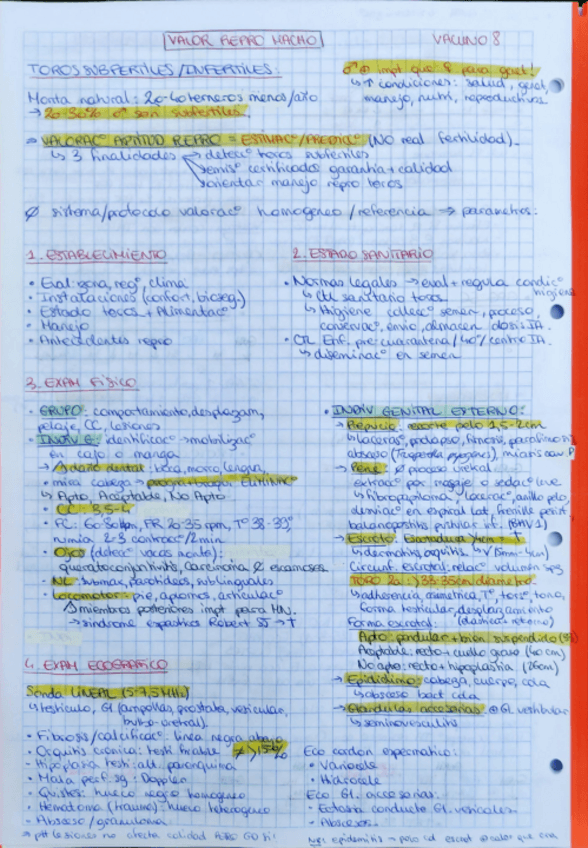 VALOR REPRO MACHO
VACUNO 8
TOROS SUBFERTILES/INFERTILES:
Monta natural: 20-40 terneros menos/año
→ 20-30% ♂ son subfertiles.
♂ impt que ♀ para gnet!
↳ ↑ condiciones: salud, gnet,
manejo, nutri, reproductivos
⇒ VALORAC° APTITUD REPRO = ESTIMAC°/PREDICC° (NO real fertilidad).
↳ 3 finalidades → detecc° toros subfertiles
→ emis° certificados garantía + calidad
→ orientar manejo repro toros
Ø sistema/protocolo valorac° homogeneo/referencia → parametros:
1. ESTABLECIMIENTO
• Eval: zona, reg°, clima
• Instalaciones (confort, bioseg.)
• Estado toros + Alimentac°
• Manejo
• Antecedentes repro
2. ESTADO SANITARIO
• Normas legales → eval + regula condic°
higiene
↳ Ctl sanitario toros
↳ Higiene collecc° semen, proceso,
conservac°, envio, almacen dosis IA.
• CTL Enf. pre cuarentena/40ª/centro IA.
↳ diseminac° en semen
3. EXAM FÍSICO
• GRUPO: comportamiento, desplazam,
pelaje, CC, lesiones
• INDIV G: identificac° → mobilizac°
en cajo o manga
→ dentario: boca, morro, lengua,
• mira cabeza → ELIMINAC°
↳ Apto, Aceptable, No Apto
• CC: 3,5-4
• FC: 60-80 bpm, FR 20-35 rpm, T° 38-39°,
rumia 2-3 contracc°/2min
• Ojos (detecc° vacas monta):
queratoconjuntivitis, carcinoma Ø escamoses
• NL: submax, parotideos, sublinguales
• Locomotor: pie, aplomos, articulac°
miembros posteriores impt para MN.
→ síndrome espastico Robert
• INDIV GENITAL EXTERNO:
→ Prepucio: recorte pelo 1,5-2cm
↳ lacerac°, prolapso, fimosis, parafimosis
absceso (Trueperella pyogenes), miasis
→ Pene: Ø proceso uretral
extracc° por masaje o sedac° leve
↳ fibropapiloma, lacerac°, anillo pelo,
desviac° en espiral lat, frenillo persist.
balanopostitis pustular inf. (BHV1)
→ Escroto:
↳ dermatitis, orquitis.
Circunf. escrotal: relac° volumen spz
TORO 2a: >33-35cm diámetro
↳ adherencia, asimetrica, T°, torsio, tono,
forma testicular, desplazamiento
Forma escrotal:
Apto: pendular + bien suspendido
Aceptable: recto + cuello graso (40 cm)
No apto: recto + hipoplastia (26cm)
→ Epididimo: cabeza, cuerpo, cola
↳ absceso bact cola
→ Glandulas accesorias Gl. vestibular
↳ seminovesiculitis
4. EXAM ECOGRAFICO
Sonda LINEAL (5-7,5 MHz)
↳ testiculo, Gl (ampollas, prostata, vesiculas,
bulbo-uretral).
• Fibrosis/calcificac°: linea negra abajo
• Orquitis cronica: testi friable ≠ >15%
• Hipoplasia testi: alt. parenquima
• Mala perf. sg: Doppler
• Quistes: hueco negro homogeneo
• Hematoma (trauma): hueco heterogeneo
• Absceso/granuloma
Eco cordon espermatico:
• Varicocele
• Hidrocele
Eco Gl. accesorias:
• Ectasia conducto Gl. vesicales
• Abscesos